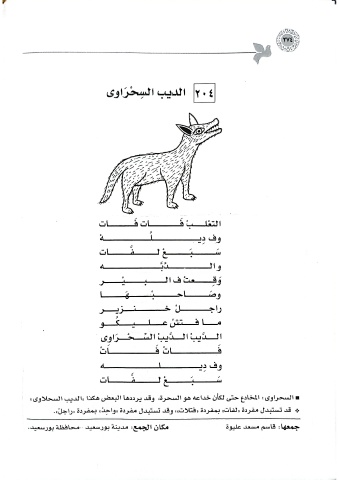 ٢٧٤
٢٠٤ الديب السِحْرَاوى
التعْلبْ فَـات فَـات
وف دِيـلُـه
سَـبَـع لَـفَّـات
والـدِبَّـه
وِقِـعـتْ ف الـبـيـر
وصَـاحـبْـهَـا
راجـل خَـنـزيـر
مـا فـتـش عـلـيـكـو
الديَبْ الديَب السَّحْراوى
فَــاتْ فَــاتْ
وف دِيـلـه
سَـبَـع لَـفَّـات
■ السحراوى، المخادع حتى لكأن خداعه هو السحرة. وقد يرددها البعض هكذا «الديب السحلاوى»
❖ قد تستبدل مفردة «لفات» بمفردة «فتلات»، وقد تستبدل مفردة «واحِدْ» بمفردة «راجل».
جمعها: قاسم مسعد عليوة مكان الجمع: مدينة بورسعيد - محافظة بورسعيد.